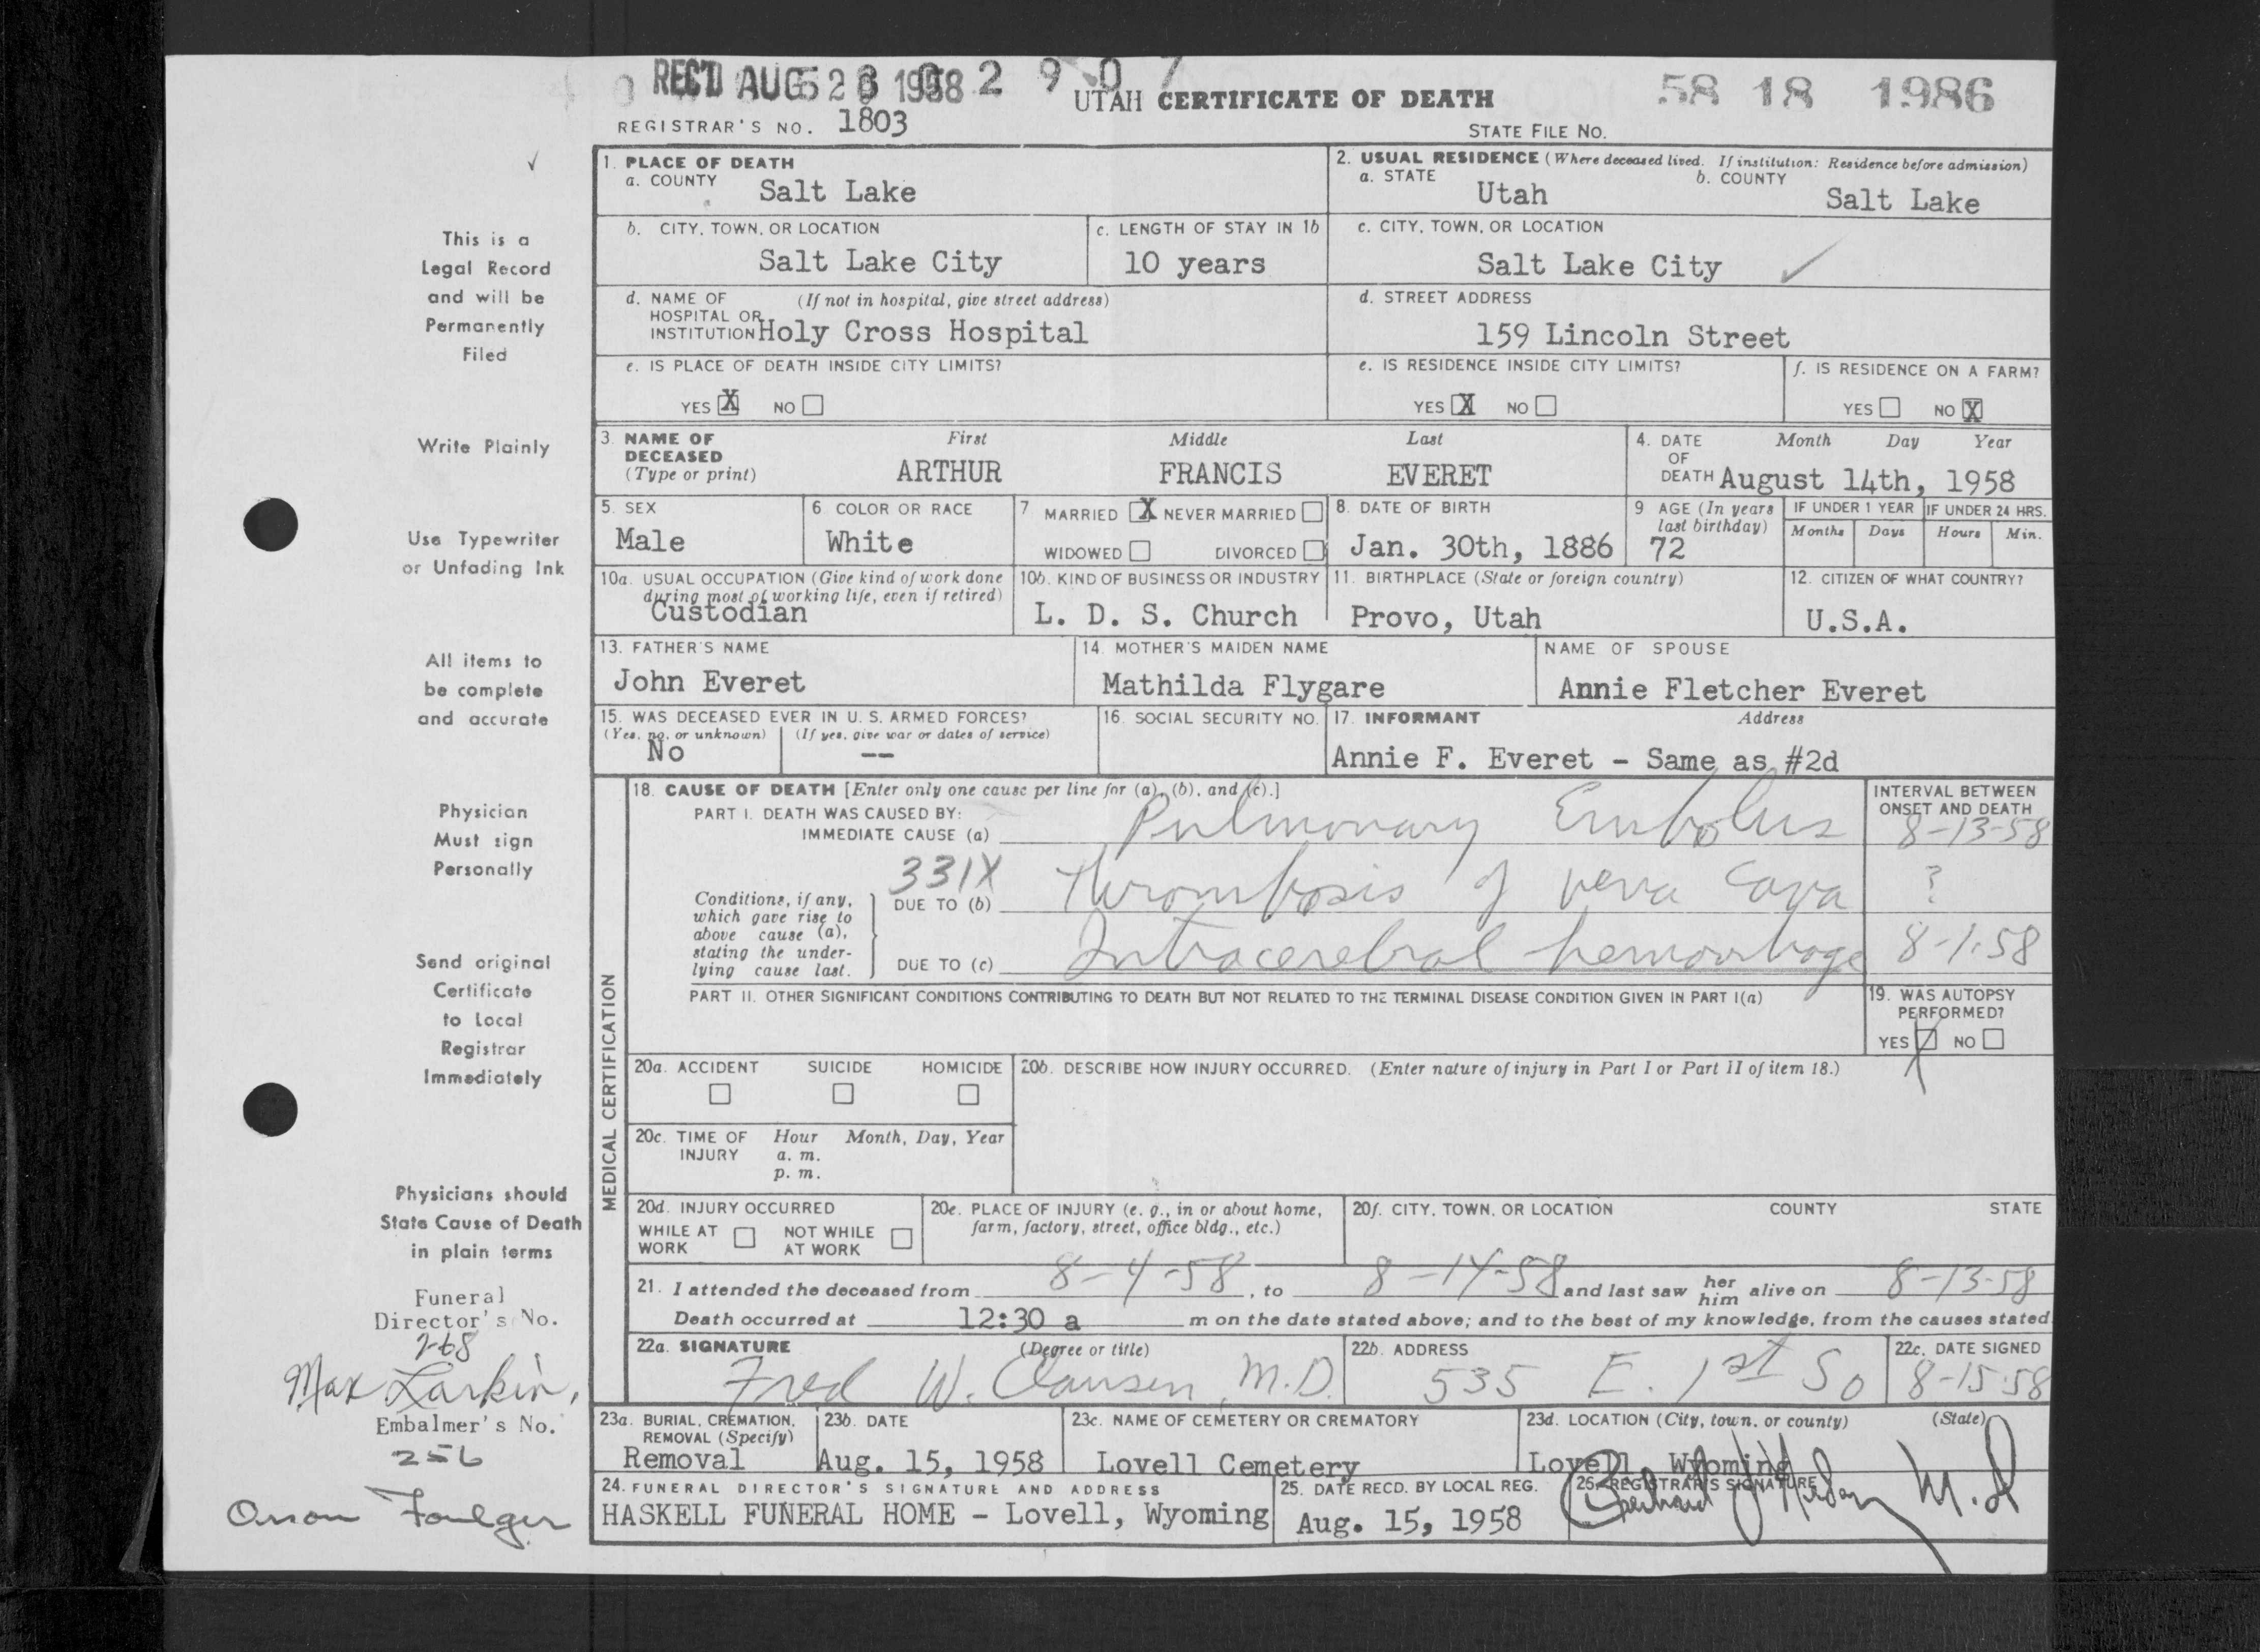 REC'D AUG 1958 2 9 0 7
UTAH CERTIFICATE OF DEATH
58 18 1986
REGISTRAR'S NO. 1803
STATE FILE NO.
1. PLACE OF DEATH
a. COUNTY Salt Lake
2. USUAL RESIDENCE (Where deceased lived. If institution: Residence before admission)
a. STATE Utah b. COUNTY Salt Lake
b. CITY, TOWN, OR LOCATION Salt Lake City
c. LENGTH OF STAY IN 1b 10 years
c. CITY, TOWN, OR LOCATION Salt Lake City
d. NAME OF HOSPITAL OR INSTITUTION (If not in hospital, give street address) Holy Cross Hospital
d. STREET ADDRESS 159 Lincoln Street
e. IS PLACE OF DEATH INSIDE CITY LIMITS?
YES X NO
e. IS RESIDENCE INSIDE CITY LIMITS?
YES X NO
f. IS RESIDENCE ON A FARM?
YES NO X
3. NAME OF DECEASED (Type or print)
First Middle Last
ARTHUR FRANCIS EVERET
4. DATE OF DEATH Month Day Year
August 14th, 1958
5. SEX Male
6. COLOR OR RACE White
7 MARRIED X NEVER MARRIED
WIDOWED DIVORCED
8. DATE OF BIRTH Jan. 30th, 1886
9 AGE (In years last birthday) 72
IF UNDER 1 YEAR Months Days
IF UNDER 24 HRS. Hours Min.
10a. USUAL OCCUPATION (Give kind of work done during most of working life, even if retired) Custodian
10b. KIND OF BUSINESS OR INDUSTRY L. D. S. Church
11. BIRTHPLACE (State or foreign country) Provo, Utah
12. CITIZEN OF WHAT COUNTRY? U.S.A.
13. FATHER'S NAME John Everet
14. MOTHER'S MAIDEN NAME Mathilda Flygare
NAME OF SPOUSE Annie Fletcher Everet
15. WAS DECEASED EVER IN U. S. ARMED FORCES?
(Yes, no, or unknown) (If yes, give war or dates of service)
No --
16. SOCIAL SECURITY NO.
17. INFORMANT Address
Annie F. Everet - Same as #2d
MEDICAL CERTIFICATION
18. CAUSE OF DEATH [Enter only one cause per line for (a), (b), and (c).]
INTERVAL BETWEEN ONSET AND DEATH
PART I. DEATH WAS CAUSED BY:
IMMEDIATE CAUSE (a) Pulmonary Embolus 8-13-58
331X
Conditions, if any, which gave rise to above cause (a), stating the underlying cause last.
DUE TO (b) Thrombosis of vena cava ?
DUE TO (c) Intracerebral hemorrhage 8-1-58
PART II. OTHER SIGNIFICANT CONDITIONS CONTRIBUTING TO DEATH BUT NOT RELATED TO THE TERMINAL DISEASE CONDITION GIVEN IN PART I(a)
19. WAS AUTOPSY PERFORMED?
YES X NO
20a. ACCIDENT SUICIDE HOMICIDE
20b. DESCRIBE HOW INJURY OCCURRED. (Enter nature of injury in Part I or Part II of item 18.)
20c. TIME OF INJURY Hour Month, Day, Year
a. m.
p. m.
20d. INJURY OCCURRED
WHILE AT WORK NOT WHILE AT WORK
20e. PLACE OF INJURY (e. g., in or about home, farm, factory, street, office bldg., etc.)
20f. CITY, TOWN, OR LOCATION COUNTY STATE
21. I attended the deceased from 8-4-58, to 8-14-58 and last saw her him alive on 8-13-58
Death occurred at 12:30 a m on the date stated above; and to the best of my knowledge, from the causes stated
22a. SIGNATURE (Degree or title)
Fred W. Clausen, M.D.
22b. ADDRESS 535 E. 1st So
22c. DATE SIGNED 8-15-58
23a. BURIAL, CREMATION, REMOVAL (Specify) Removal
23b. DATE Aug. 15, 1958
23c. NAME OF CEMETERY OR CREMATORY Lovell Cemetery
23d. LOCATION (City, town, or county) (State)
Lovell Wyoming
24. FUNERAL DIRECTOR'S SIGNATURE AND ADDRESS
HASKELL FUNERAL HOME - Lovell, Wyoming
25. DATE RECD. BY LOCAL REG. Aug. 15, 1958
26. REGISTRAR'S SIGNATURE
M.D
This is a
Legal Record
and will be
Permanently
Filed
Write Plainly
Use Typewriter
or Unfading Ink
All items to
be complete
and accurate
Physician
Must sign
Personally
Send original
Certificate
to Local
Registrar
Immediately
Physicians should
State Cause of Death
in plain terms
Funeral
Director's No.
268
Max Larkin,
Embalmer's No.
256
Orson Foulger